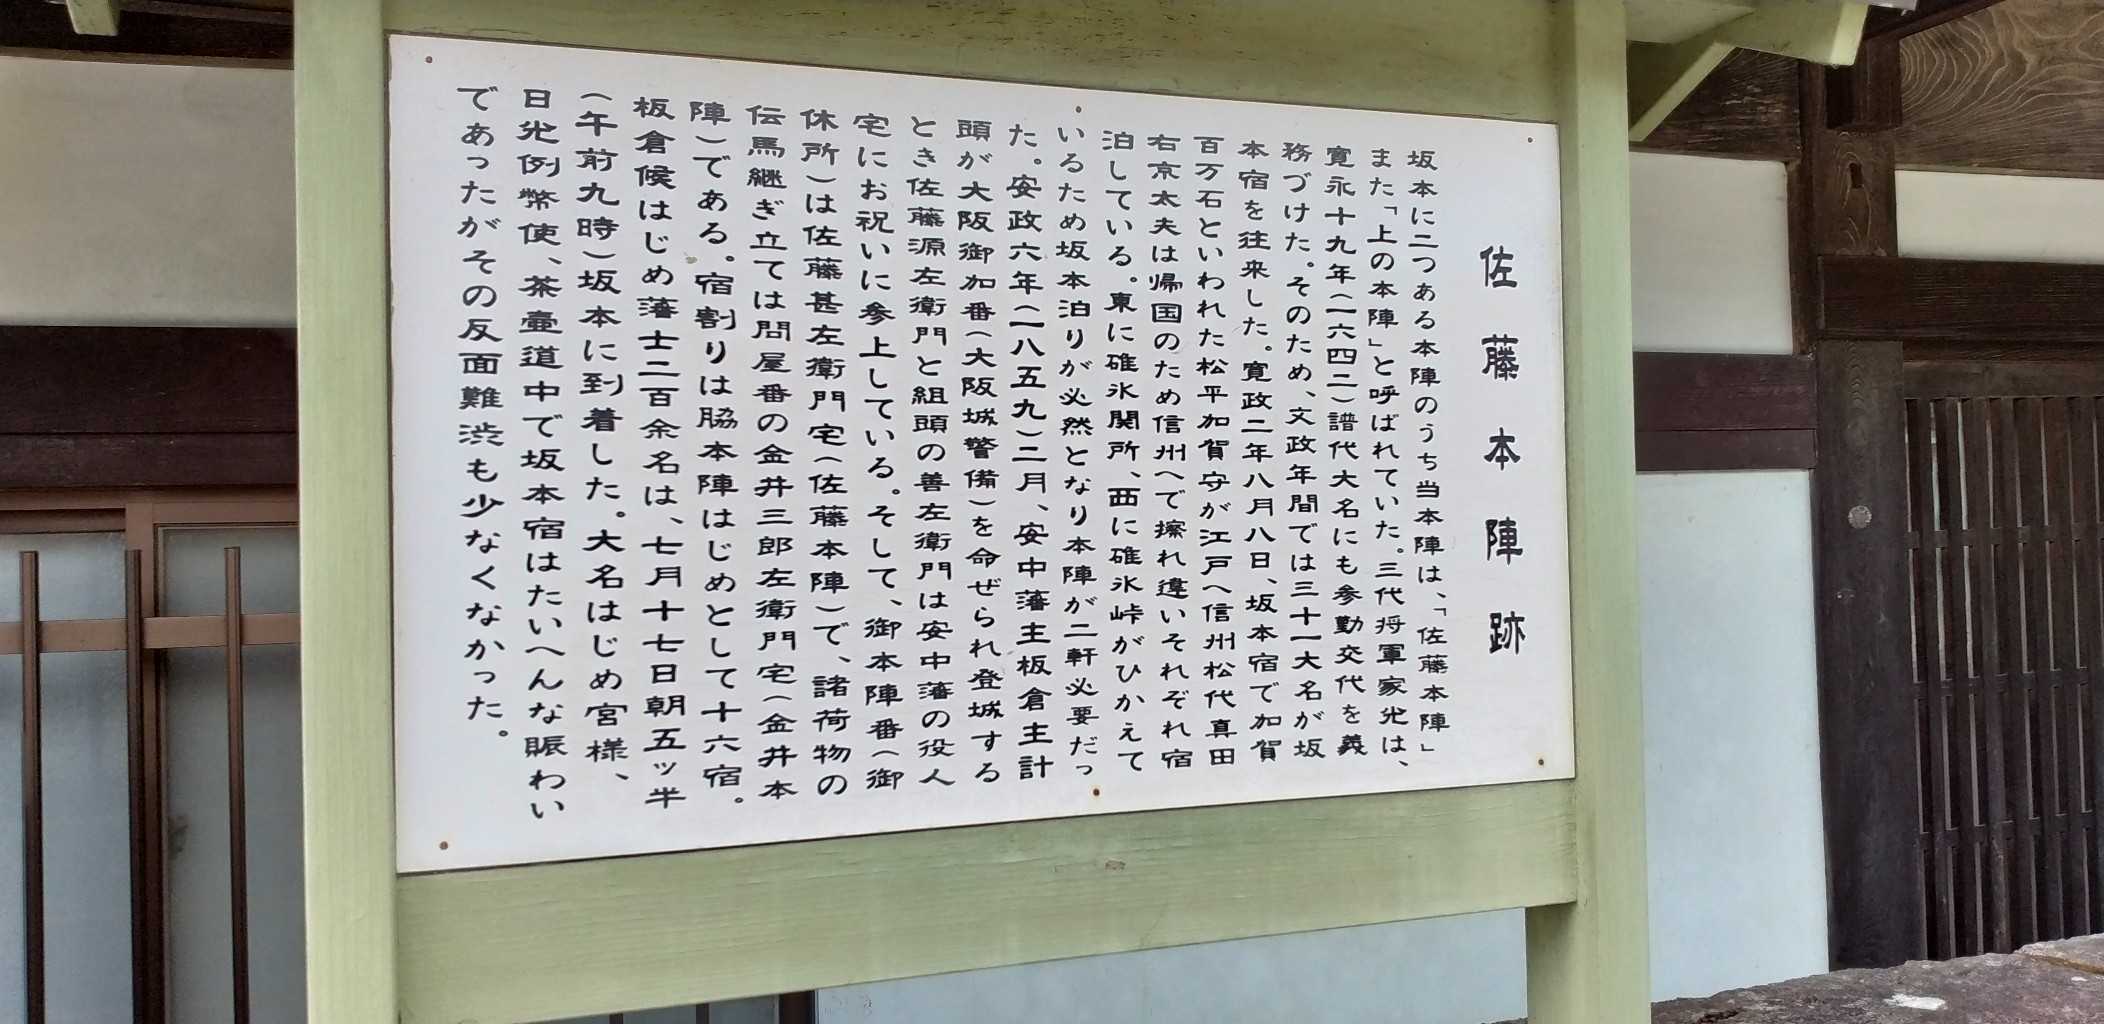 佐藤本陣跡
坂本に二つある本陣のうち当本陣は、「佐藤本陣」
また「上の本陣」と呼ばれていた。三代将軍家光は、
寛永十九年(一六四二)譜代大名にも参勤交代を義
務づけた。そのため、文政年間では三十一大名が坂
本宿を往来した。寛政二年八月八日、坂本宿で加賀
百万石といわれた松平加賀守が江戸へ信州松代真田
右京太夫は帰国のため信州へで擦れ違いそれぞれ宿
泊している。東に碓氷関所、西に碓氷峠がひかえて
いるため坂本泊りが必然となり本陣が二軒必要だっ
た。安政六年(一八五九)二月、安中藩主板倉主計
頭が大阪御加番(大阪城警備)を命ぜられ登城する
とき佐藤源左衛門と組頭の善左衛門は安中藩の役人
宅にお祝いに参上している。そして、御本陣番(御
休所)は佐藤甚左衛門宅(佐藤本陣)で、諸荷物の
伝馬継ぎ立ては問屋番の金井三郎左衛門宅(金井本
陣)である。宿割りは脇本陣はじめとして十六宿。
板倉候はじめ藩士二百余名は、七月十七日朝五ッ半
(午前九時)坂本に到着した。大名はじめ宮様、
日光例幣使、茶壷道中で坂本宿はたいへんな賑わい
であったがその反面難渋も少なくなかった。